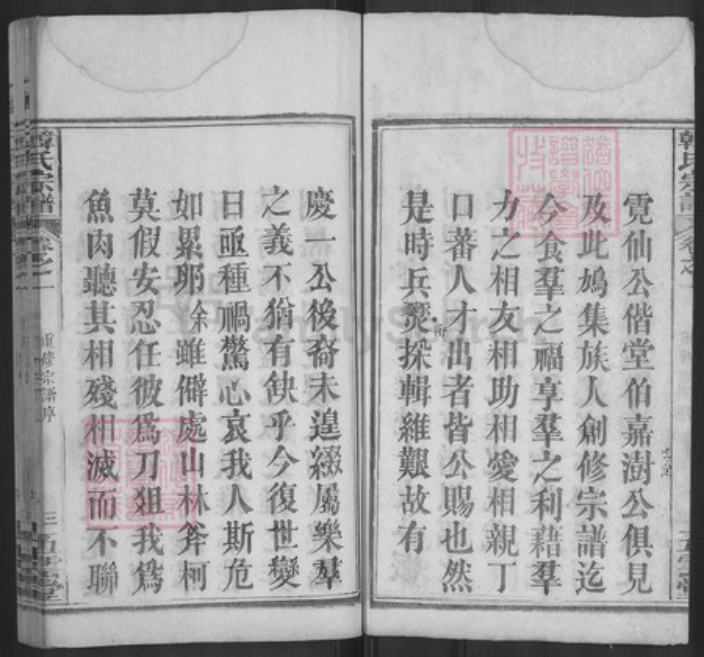 霓仙公偕堂伯嘉澍公俱見
及此鳩集族人創修宗譜迄
今食羣之福享羣之利藉羣
力之相友相助相愛相親丁
口蕃人才出者皆公賜也然
是時兵燹採輯維艱故有
慶一公後裔未遑綴屬樂羣
之義不猶有缺乎今復世變
日亟種禍驚心哀我人斯危
如累卵余雖僻處山林斧柯
莫假安忍任彼為刀狙我為
魚肉聽其相殘相滅而不聯
韓氏宗譜
卷之一
重修宗譜序
三